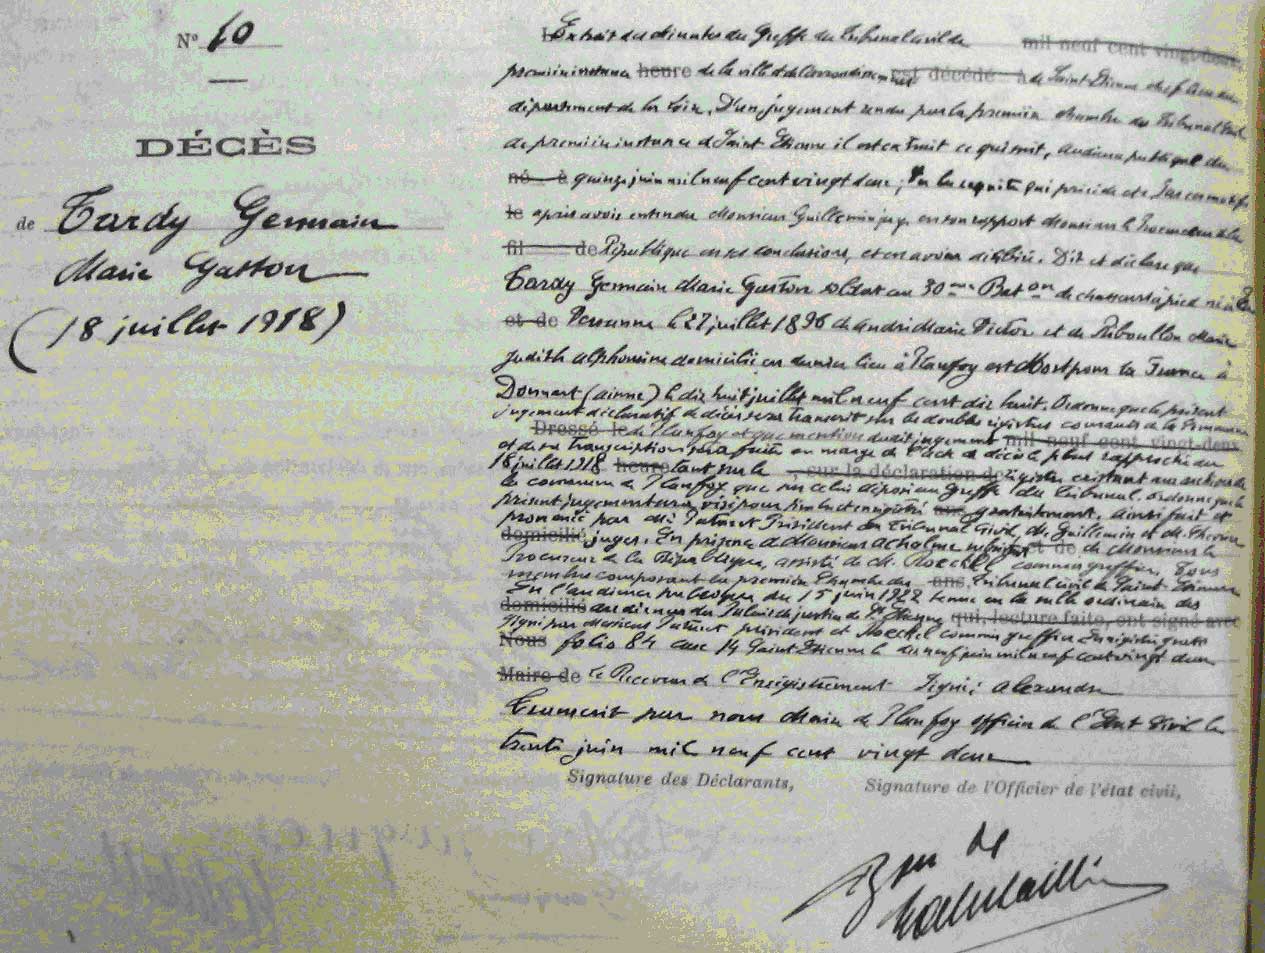 N° 10
DÉCÈS
de Tardy Germain
Marie Gaston
(18 juillet 1918)
Extrait des minutes du Greffe du Tribunal civil de mil neuf cent vingt-deux,
première instance heure de la ville et de l'arrondissement est décédé à de Saint-Etienne chef lieu du
département de la Loire. D'un jugement rendu par la première chambre du Tribunal Civil
de première instance de Saint Etienne il est extrait ce qui suit, audience publique du
né à quinze juin mil neuf cent vingt deux, Vu la requête qui précède et Par ces motifs
le après avoir entendu Monsieur Guillemin juge en son rapport Monsieur le Procureur de la
fil de République en ses conclusions, et en avoir délibéré. Dit et déclare que
Tardy Germain Marie Gaston soldat au 30ème Baton de chasseurs à pied né à
et de Peranne le 27 juillet 1896 de André Marie Victor et de Riboullon Marie
Judith Alphonsine domicilié en dernier lieu à Planfoy est Mort pour la France à
Dommert (aisne) le dix huit juillet mil neuf cent dix huit. Ordonne que le présent
jugement déclaratif de décès sera transcrit sur les doubles registres courants de la Commune
Dressé le de Planfoy et que mention dudit jugement mil neuf cent vingt-deux
et de sa transcription sera faite en marge de l'acte de décès le plus rapproché du
18 juillet 1918 heure tant sur le , sur la déclaration de registre existant aux archives de
la commune de Planfoy que sur celui déposé au greffe du Tribunal. Ordonne que le
présent jugement sera visé pour timbre et enregistré ans gratuitement. ainsi fait et
prononcé par Président du Tribunal Civil, de Guillemin et
domicilié juges. En présence de Monsieur et de de Monsieur le
Procureur de la République, assisté de M. Roechel commis greffier, Tous
membre composant la première Chambre du ans Tribunal civil de Saint-Etienne
En l'audience publique du 15 juin 1922 tenue en la salle ordinaire des
domicilié audiences du Palais de justice de St Etienne qui, lecture faite, ont signé avec
Signé par Messieurs président et Roechel commis greffier Enregistré gratis
Nous folio 84 case 14 Saint-Etienne le dix neuf juin mil neuf cent vingt deux
Maire de Le Receveur de l'Enregistrement Signé: Alexandre
Transcrit par nous Maire de Planfoy officier de l'Etat Civil le
trente juin mil neuf cent vingt deux
Signature des Déclarants, Signature de l'Officier de l'état civil,